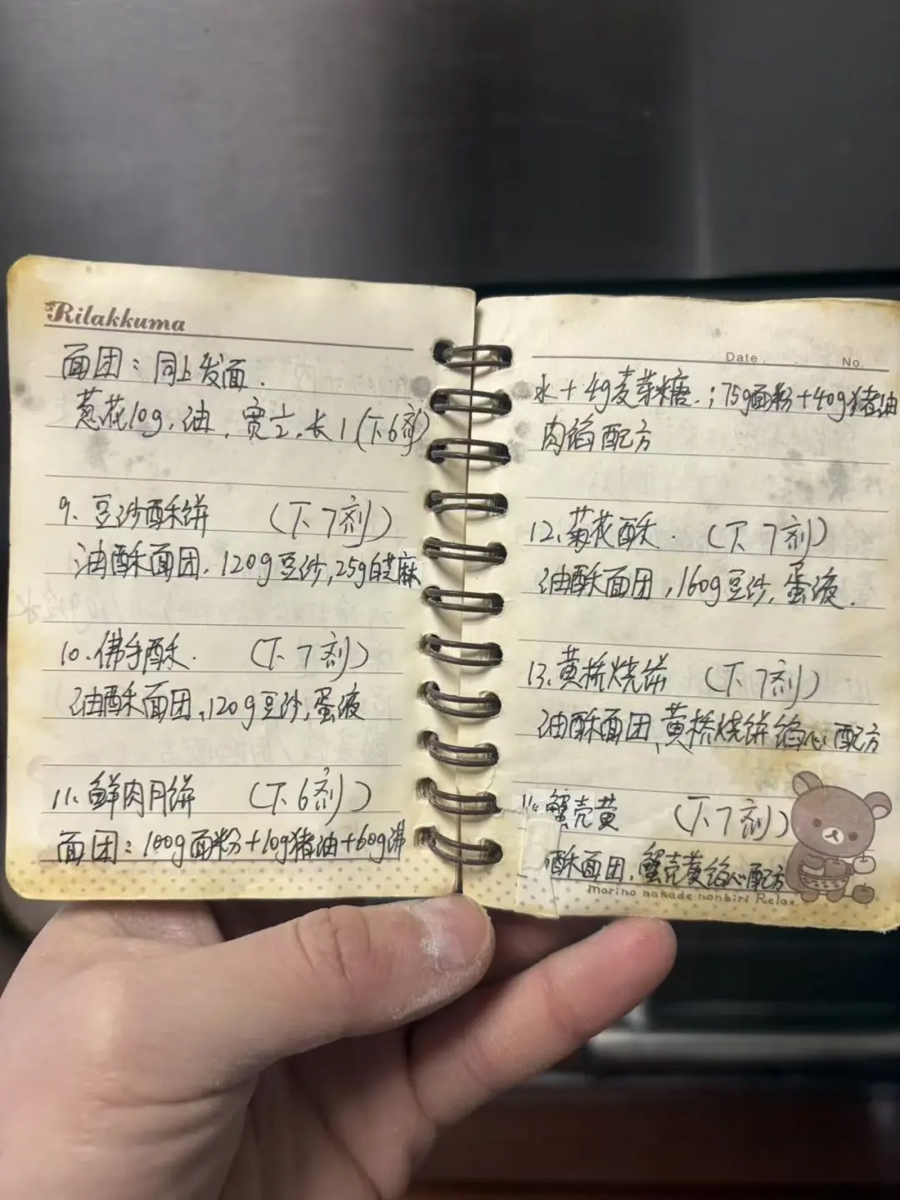 Rilakkuma
面团：同上发面.
葱花10g,油,宽2,长1(下6剂)
9.豆沙酥饼 (下7剂)
油酥面团,120g豆沙,25g白芝麻
10.佛手酥. (下7剂)
油酥面团,120g豆沙,蛋液
11.鲜肉月饼 (下6剂)
面团：100g面粉+10g猪油+60g沸
Date . . No.
水+4g麦芽糖.;75g面粉+40g猪油
肉馅配方
12.菊花酥. (下7剂)
油酥面团,160g豆沙,蛋液.
13.黄桥烧饼 (下7剂)
油酥面团,黄桥烧饼馅心配方
14.蟹壳黄 (下7剂)
酥面团,蟹壳黄馅心配方
marino nakade nonbiri Relax.